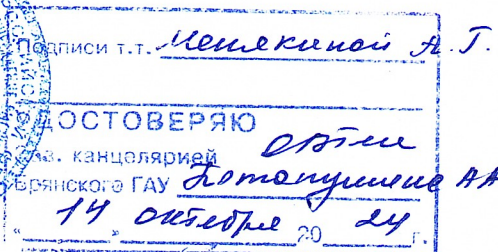 Подписи т.т. Менякиной А. Г.
УДОСТОВЕРЯЮ
Зав. канцелярией
Брянского ГАУ АА
"14" октября 2024 г.